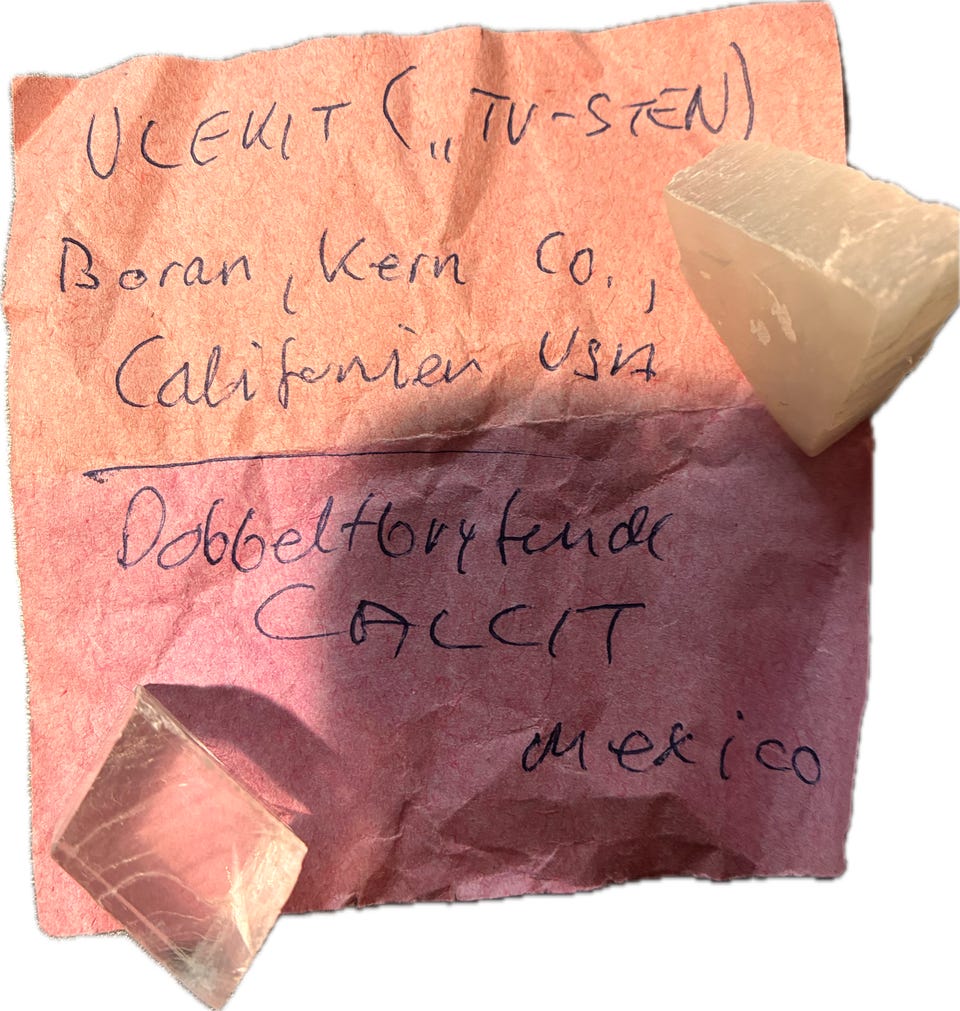 ULEXIT („TV-STEN)
Boran, Kern Co.,
Californien USA
Dobbeltbrytende
CALCIT
Mexico